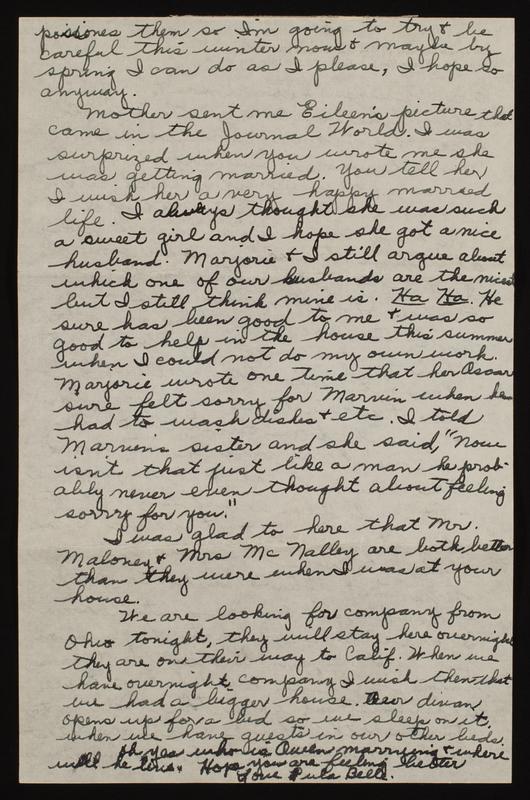 possones them so I'm going to try & be
careful this winter now & maybe by
spring I can do as I please, I hope so
anyway.
Mother sent me Eileen's picture that
came in the Journal World. I was
surprized when you wrote me she
was getting married. You tell her
I wish her a very happy married
life. I always thought she was such
a sweet girl and I hope she got a nice
husband. Marjorie & I still argue about
which one of our husbands are the nicest
but I still think mine is. Ha Ha. He
sure has been good to me & was so
good to help in the house this summer
when I could not do my own work.
Marjorie wrote one time that her Oscar
sure felt sorry for Marvin when he
had to wash dishes & etc. I told
Marvin's sister and she said, "Now
isn't that just like a man he prob-
ably never even thought about feeling
sorry for you."
I was glad to here that Mr.
Maloney & Mrs McNalley are both better
than they were when I was at your
house.
We are looking for company from
Ohio tonight, they will stay here overnight
they are on their way to Calif. When we
have overnight company I wish then that
we had a bigger house. Our divan
opens up for a bed so we sleep on it,
when we have guests in our other beds.
Oh yes who is Owen marrying & where
will he live. Hope you are feeling better
Love Eula Belle.